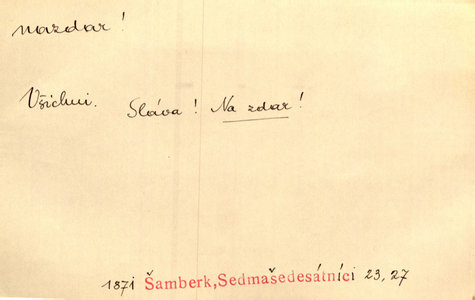 nazdar!
Všichni. Sláva! Na zdar!
1871 Šamberk, Sedmašedesátníci 23, 27